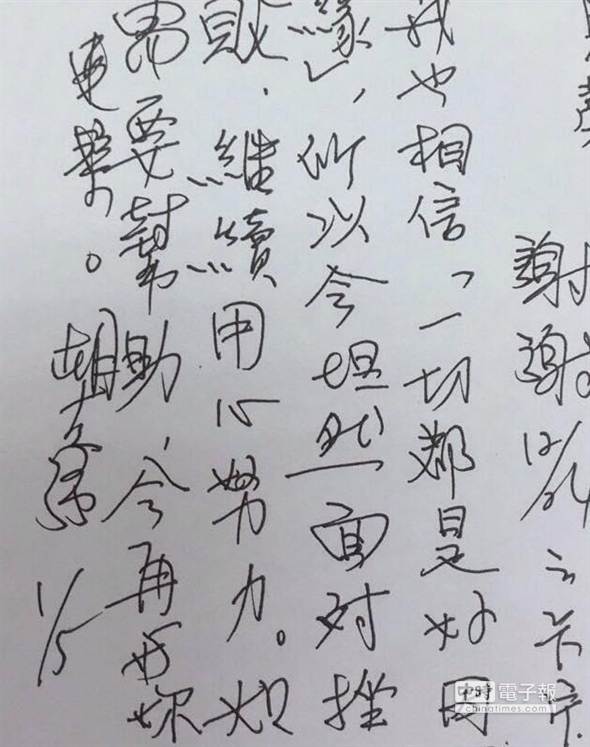 謝謝12/24之卡片
我也相信「一切都是好因
緣」,所以會坦然面對挫
敗,繼續用心努力。如
需要幫助,會再与妳
連繫。 1/5
中時電子報
chinatimes.com